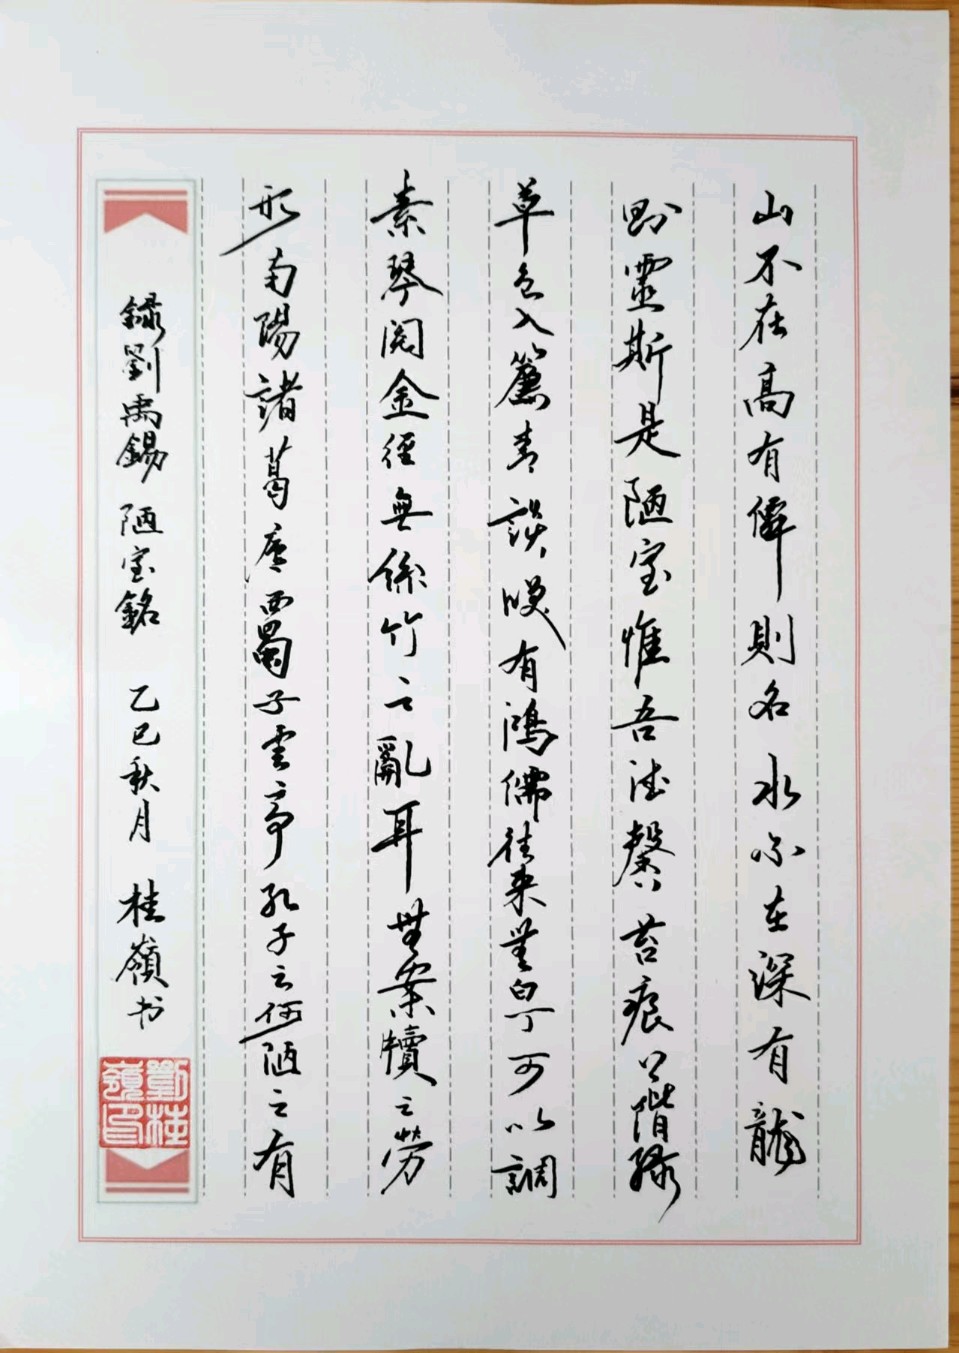 山不在高有僊則名水不在深有龍
則靈斯是陋室惟吾德馨苔痕上階緑
草色入簾青談笑有鴻儒往来無白丁可以調
素琴閲金経無絲竹之亂耳無案牘之勞
形南陽諸葛廬西蜀子雲亭孔子云何陋之有
録劉禹錫陋室銘 乙巳秋月 桂嶺书
劉桂嶺印